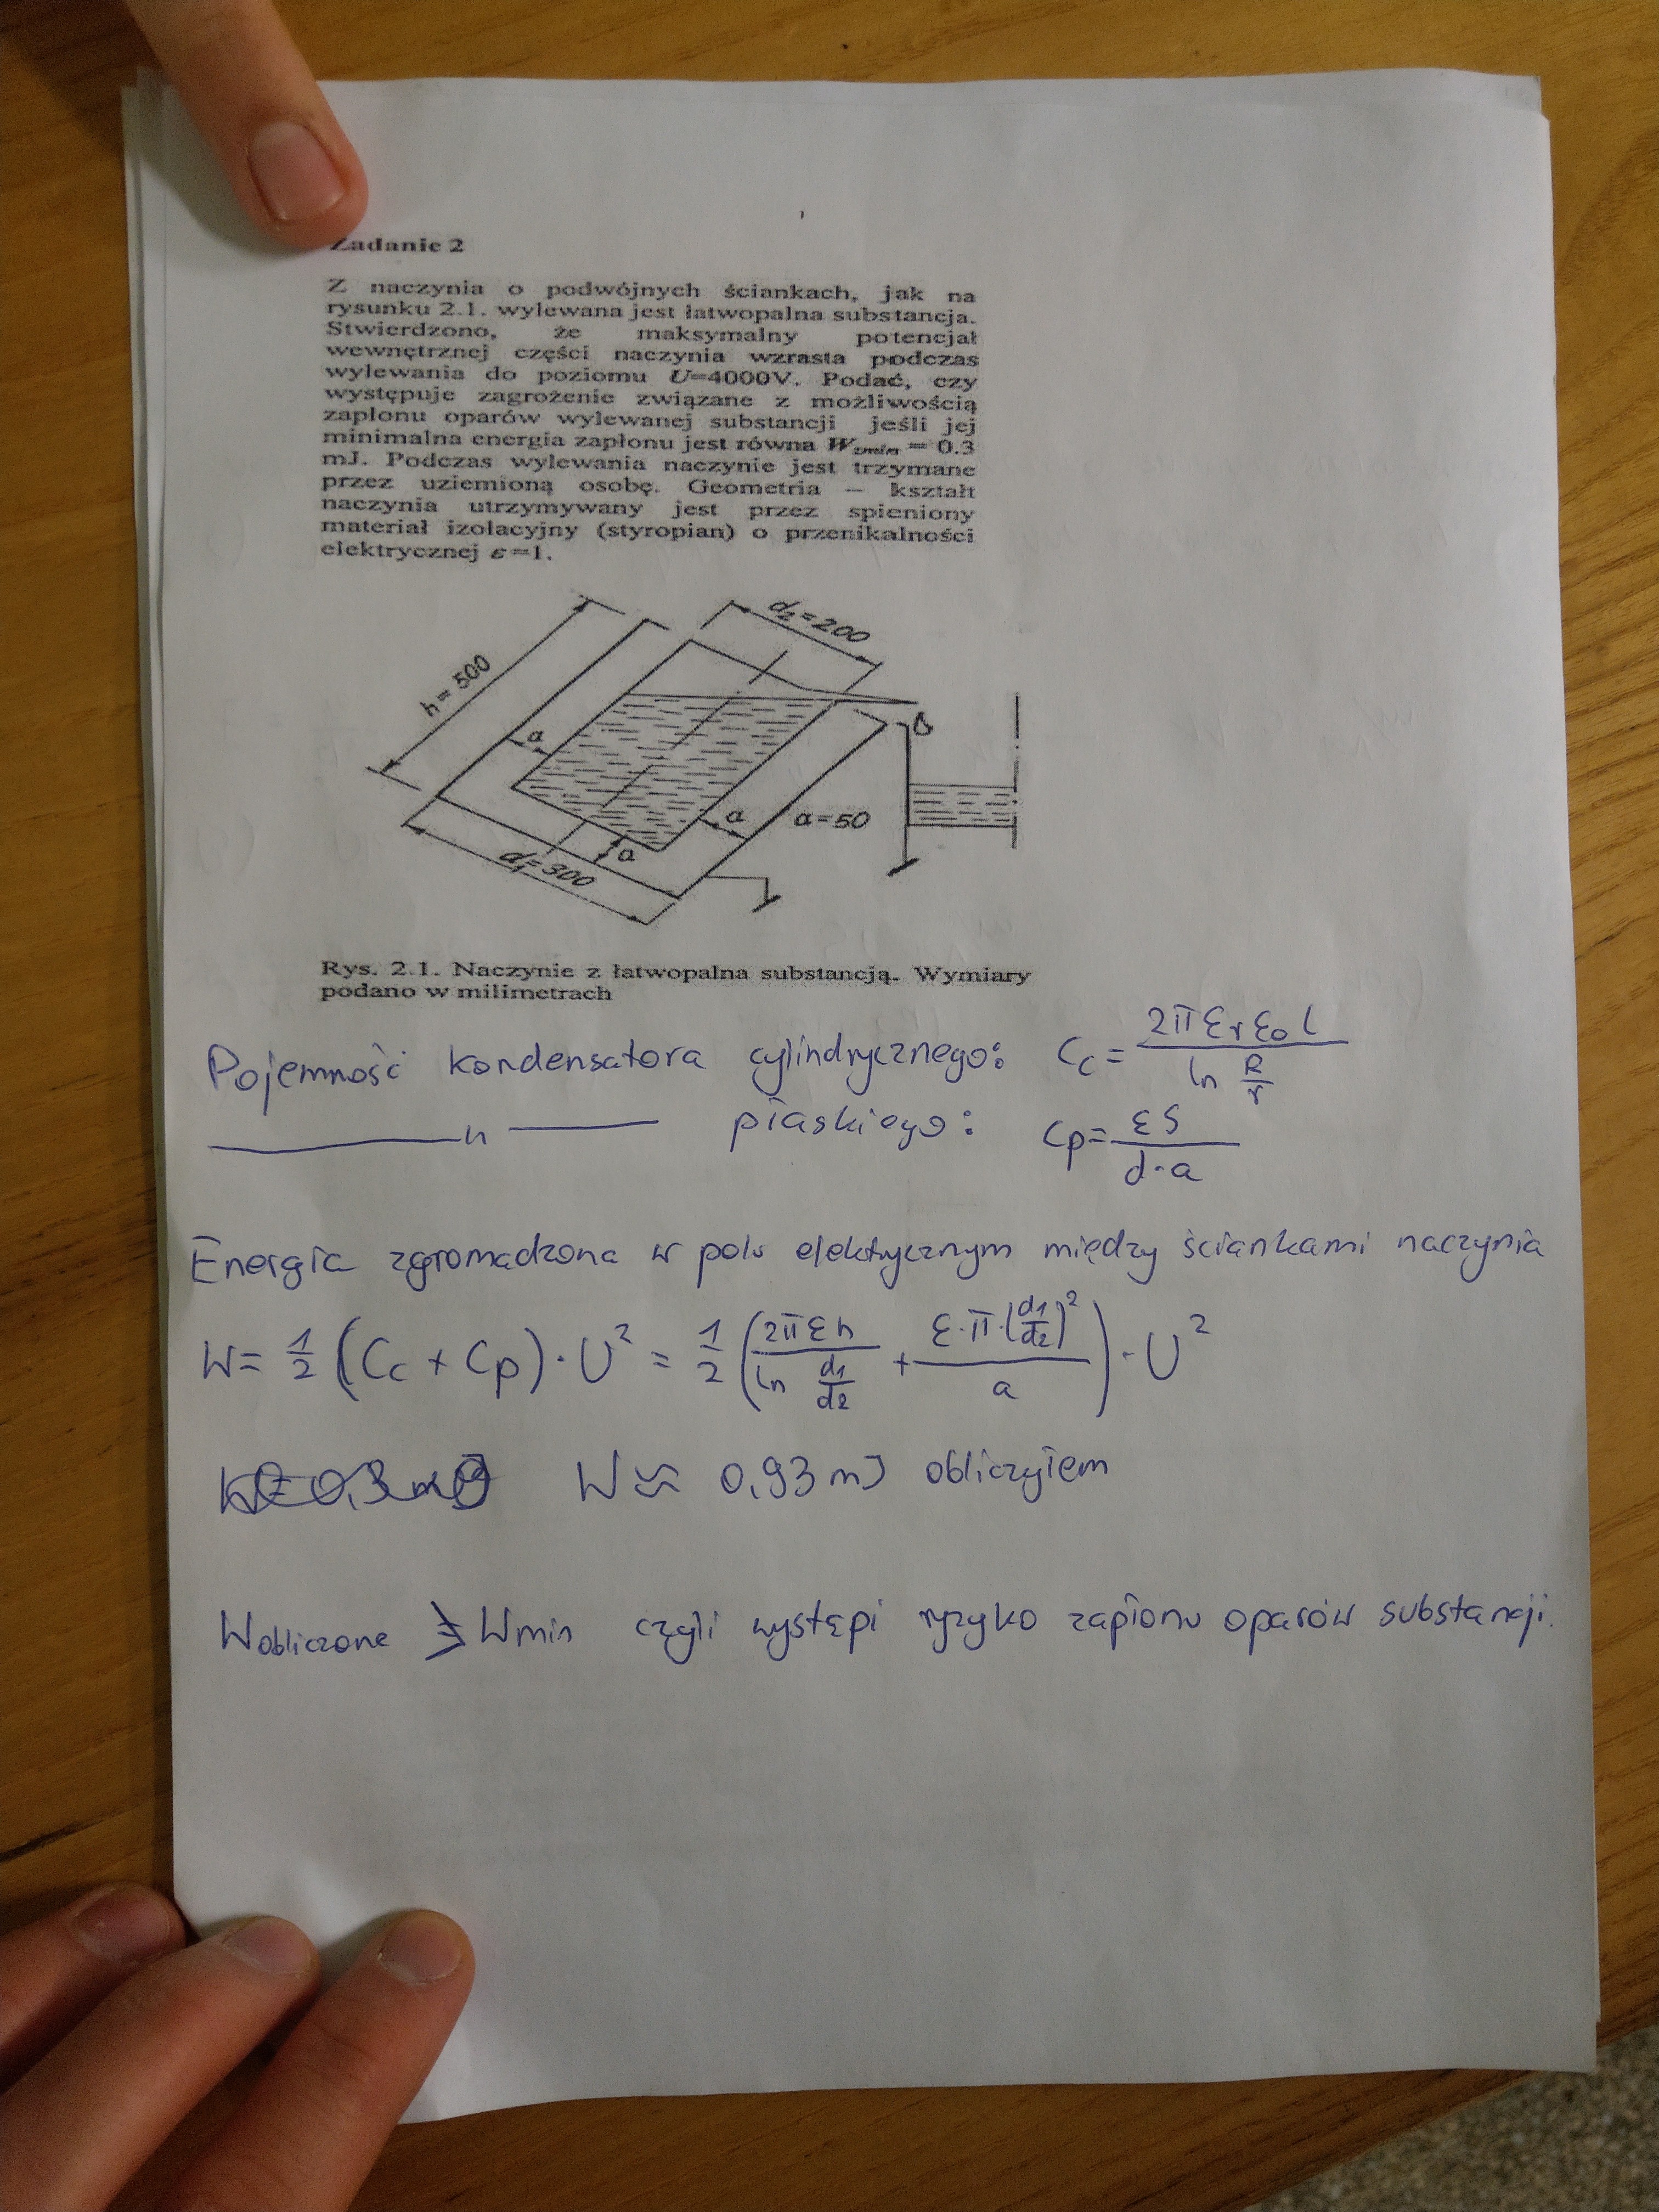 Zadanie 2
Z naczynia o podwójnych ściankach, jak na
rysunku 2.1. wylewana jest łatwopalna substancja.
Stwierdzono, że maksymalny potencjał
wewnętrznej części naczynia wzrasta podczas
wylewania do poziomu U=4000V. Podać, czy
występuje zagrożenie związane z możliwością
zapłonu oparów wylewanej substancji jeśli jej
minimalna energia zapłonu jest równa Wzmin = 0.3
mJ. Podczas wylewania naczynie jest trzymane
przez uziemioną osobę. Geometria – kształt
naczynia utrzymywany jest przez spieniony
materiał izolacyjny (styropian) o przenikalności
elektrycznej ε=1.
d₂=200
h=500
a
a
a=50
a
d₁=300
Rys. 2.1. Naczynie z łatwopalna substancją. Wymiary
podano w milimetrach
Pojemność kondensatora cylindrycznego: Cc = 2πεrε₀l / ln R/r
—— 〃 —— płaskiego: Cp = εS / d·a
Energia zgromadzona w polu elektrycznym między ściankami naczynia
W = 1/2 (Cc + Cp)·U² = 1/2 (2πεh / ln d₁/d₂ + ε·π·(d₁/d₂)² / a)·U²
W ≈ 0,93 mJ obliczyłem
Wobliczone ≥ Wmin czyli wystąpi ryzyko zapłonu oparów substancji.